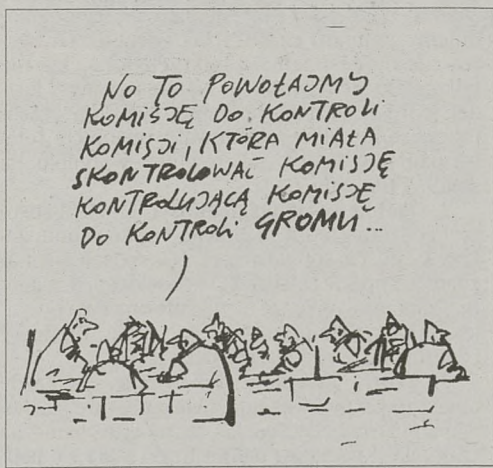 NO TO POWOŁAJMY
KOMISJĘ DO KONTROLI
KOMISJI, KTÓRA MIAŁA
SKONTROLOWAĆ KOMISJĘ
KONTROLUJĄCĄ KOMISJĘ
DO KONTROLI GROMU...